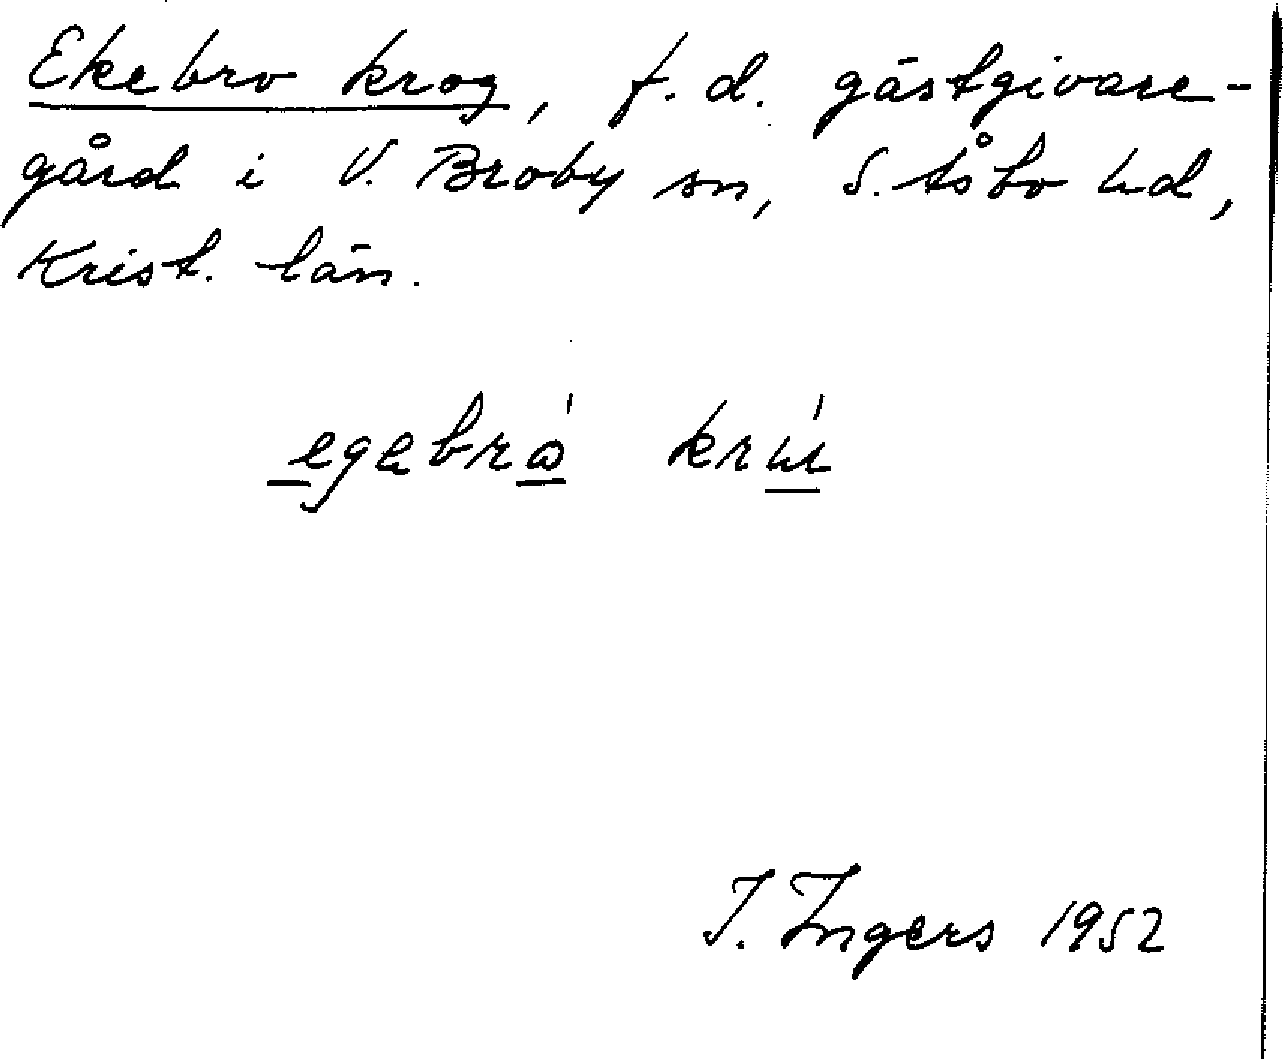 Ekebro krog, f.d. gästgivare-
gård i V. Broby sn, S. Åsbo hd,
Krist. län.
I. Ingers 1952